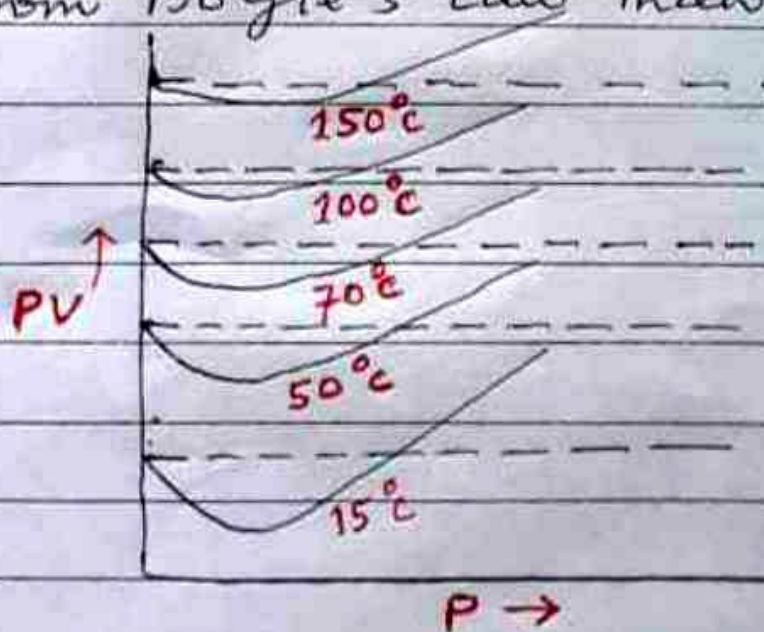 Boyle's Law
150°C
100°C
70°C
PV ↑
50°C
15°C
P →